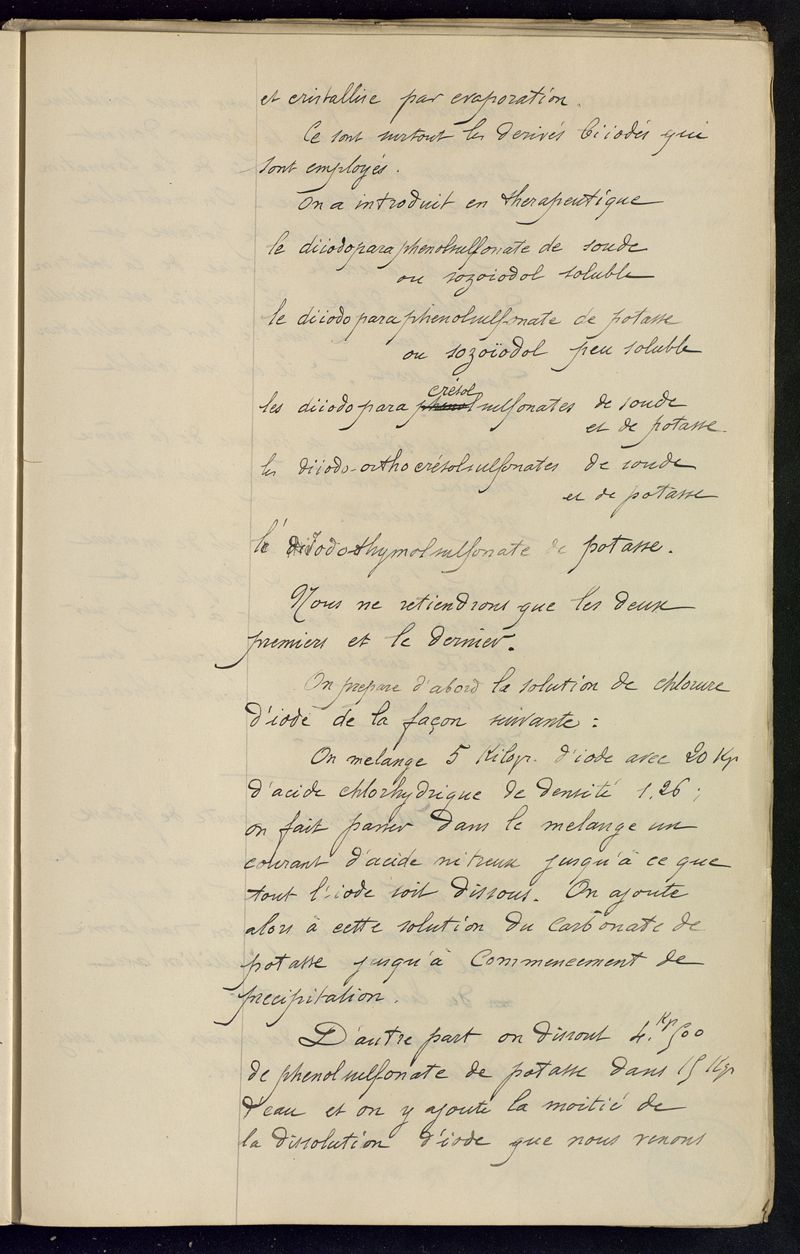 et cristallise par evaporation.
Ce sont surtout les derivés biiodés qui
sont employés.
On a introduit en therapeutique
le diiodoparaphenolsulfonate de soude
ou sozoiodol soluble
le diiodoparaphenolsulfonate de potasse
ou sozoïodol peu soluble
crésol
les diiodopara phenolsulfonates de soude
et de potasse.
les diiodo-orthocrésolsulfonates de soude
et de potasse
le diiodothymolsulfonate de potasse.
Nous ne retiendrons que les deux
premiers et le dernier.
On prepare d'abord la solution de chlorure
d'iode de la façon suivante :
On melange 5 Kilogr. d'iode avec 20 Kgr
d'acide chlorhydrique de densité 1,26 ;
on fait passer dans le melange un
courant d'acide nitreux jusqu'à ce que
tout l'iode soit dissous. On ajoute
alors à cette solution du carbonate de
potasse jusqu'à commencement de
precipitation.
D'autre part on dissout 4.Kgr 500
de phenolsulfonate de potasse dans 15 Kgr
d'eau et on y ajoute la moitié de
la dissolution d'iode que nous venons